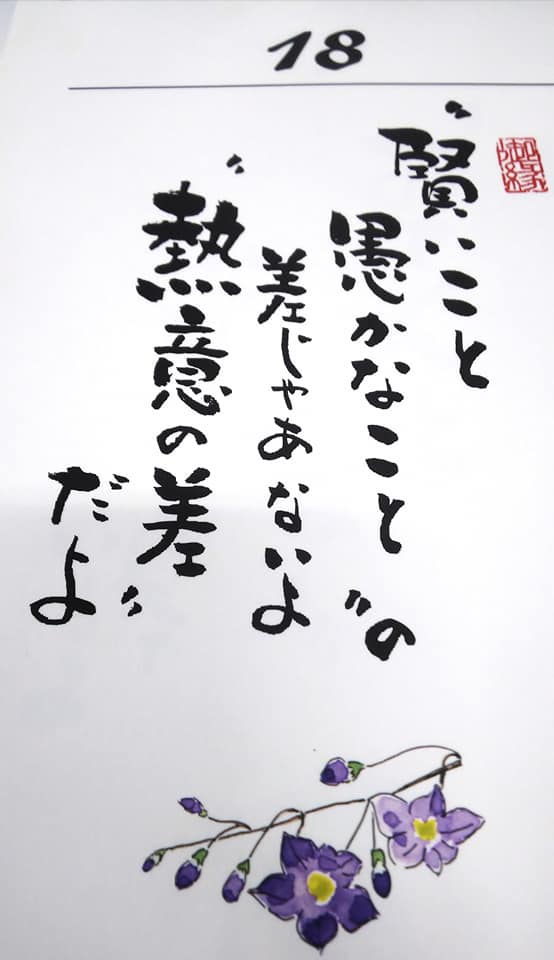 18
〝賢いこと
愚かなこと〟の
差じゃあないよ
〝熱意の差〟
だよ
御縁